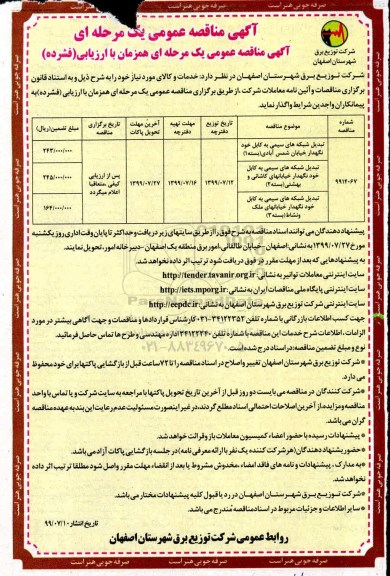 آگهی مناقصه عمومی یک مرحله ای
آگهی مناقصه عمومی یک مرحله ای همزمان با ارزیابی(فشرده)
شرکت توزیع برق
شهرستان اصفهان
شرکت توزیع برق شهرستان اصفهان در نظر دارد: خدمات و کالای مورد نیاز خود را به شرح ذیل و به استناد قانون
برگزاری مناقصات و آئین نامه معاملات شرکت، از طریق برگزاری مناقصه عمومی یک مرحله ای همزمان با ارزیابی (فشرده) به
پیمانکاران واجدین شرایط واگذار نماید.
شماره مناقصه
موضوع مناقصه
تاریخ توزیع دفترچه
مهلت تهیه دفترچه
آخرین مهلت تحویل پاکات
تاریخ برگزاری مناقصه
مبلغ تضمین(ریال)
۹۹۱۴۰۶۷
تبدیل شبکه های سیمی به کابل خود
نگهدار خیابان شمس آبادی(بسته۱)
تبدیل شبکه های سیمی به کابل
خود نگهدار خیابانهای کاشانی و
بهشتی(بسته۲)
تبدیل شبکه های سیمی به کابل
خود نگهدار خیابانهای ملک
ونشاط(بسته۳)
۱۳۹۹/۰۷/۱۲
۱۳۹۹/۰۷/۱۶
۱۳۹۹/۰۷/۲۷
پس از ارزیابی
کیفی ،متعاقبا
اعلام میگردد
۲۴۳/۰۰۰/۰۰۰
۲۲۵/۰۰۰/۰۰۰
۱۶۴/۰۰۰/۰۰۰
پیشنهاد دهندگان می توانند اسناد مناقصه به شرح فوق را از طریق سایتهای زیر دریافت و حداکثر تا پایان وقت اداری روز یکشنبه
مورخ ۱۳۹۹/۰۷/۲۷ به نشانی: اصفهان - خیابان طالقانی، امور برق منطقه یک اصفهان -دبیرخانه امور، تحویل نمایند.
به پیشنهادهایی که بعد از مهلت مقرر در فوق دریافت شود ترتیب اثر داده نخواهد شد.
سایت اینترنتی معاملات توانیر به نشانی: http://tender.tavanir.org.ir
سایت اینترنتی پایگاه ملی مناقصات ایران به نشانی: http://iets.mporg.ir
سایت اینترنتی شرکت توزیع برق شهرستان اصفهان به نشانی: http://eepdc.ir
جهت کسب اطلاعات بازرگانی با شماره تلفن ۳۴۱۲۲۳۵۲-۰۳۱ کارشناس قراردادها و مناقصات و جهت آگاهی بیشتر در مورد
الزامات ، اطلاعات شرح خدمات این مناقصه با شماره تلفن ۳۴۱۲۲۲۴۰ اداره مهندسی و طرح ها تماس حاصل فرمائید.
نوع و مبلغ تضمین مناقصه: در اسناد درج شده است.
*شرکت توزیع برق شهرستان اصفهان تغییر و اصلاح در اسناد مناقصه را تا ۷۲ ساعت قبل از بازگشایی پاکتها برای خود محفوظ
می دارد.
*شرکت کنندگان در مناقصه می بایست دو روز قبل از آخرین تاریخ تحویل پاکتها با مراجعه به سایت شرکت و یا تماس با واحد
مناقصه و مزایده، از آخرین اصلاحات احتمالی اسناد مطلع گردند، در غیر اینصورت مسئولیت عدم رعایت این بند به عهده مناقصه
گران می باشد.
* پیشنهادات رسیده با حضور اعضاء کمیسیون معاملات باز و قرائت خواهد شد.
*حضور پیشنهاد دهندگان( هر شرکت کننده یک نفر با ارائه معرفی نامه) در جلسه بازگشایی پاکات آزاد می باشد.
*به مدارک ، پیشنهادات و نامه های فاقد امضاء، مخدوش مشروط یا بعد از انقضاء مهلت مقرر واصل شود مطلقا ترتیب اثر داده
نخواهد شد.
*شرکت توزیع برق شهرستان اصفهان در رد یا قبول کلیه پیشنهادات مختار می باشد.
*سایر اطلاعات و جزئیات مربوط در اسناد مناقصه مندرج می باشد.
تاریخ انتشار: ۹۹/۰۷/۱۰
روابط عمومی شرکت توزیع برق شهرستان اصفهان
صرفه جویی هنر است